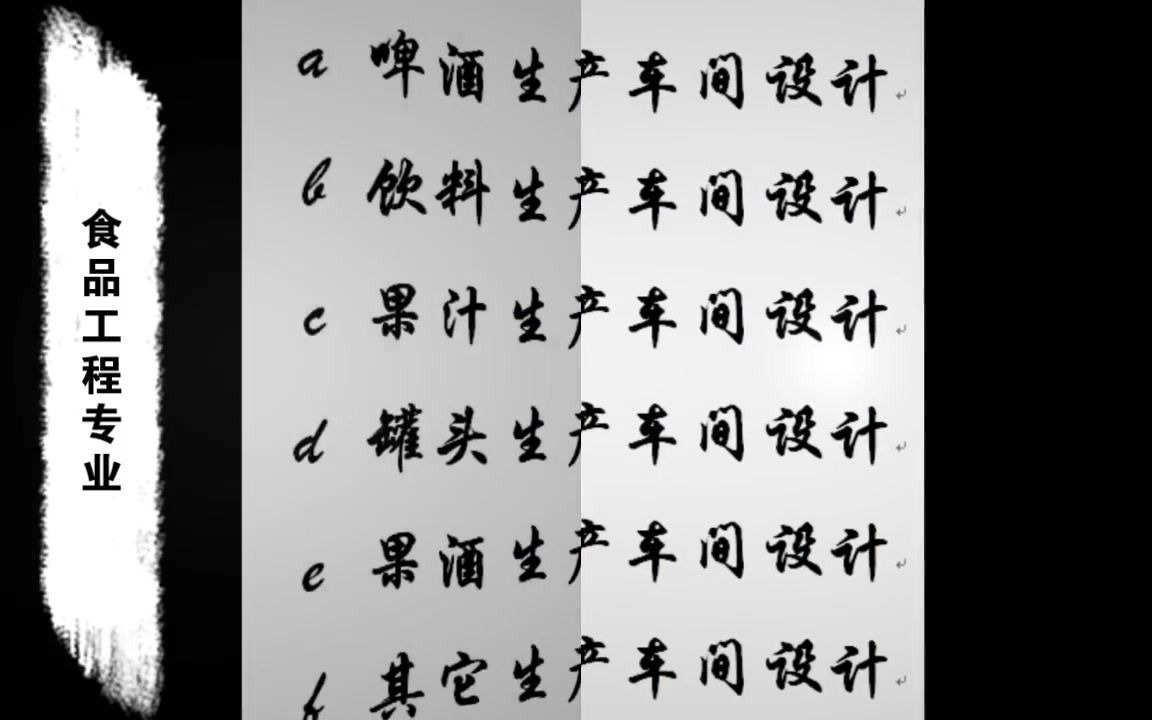 食品工程专业
a 啤酒生产车间设计
b 饮料生产车间设计
c 果汁生产车间设计
d 罐头生产车间设计
e 果酒生产车间设计
f 其它生产车间设计